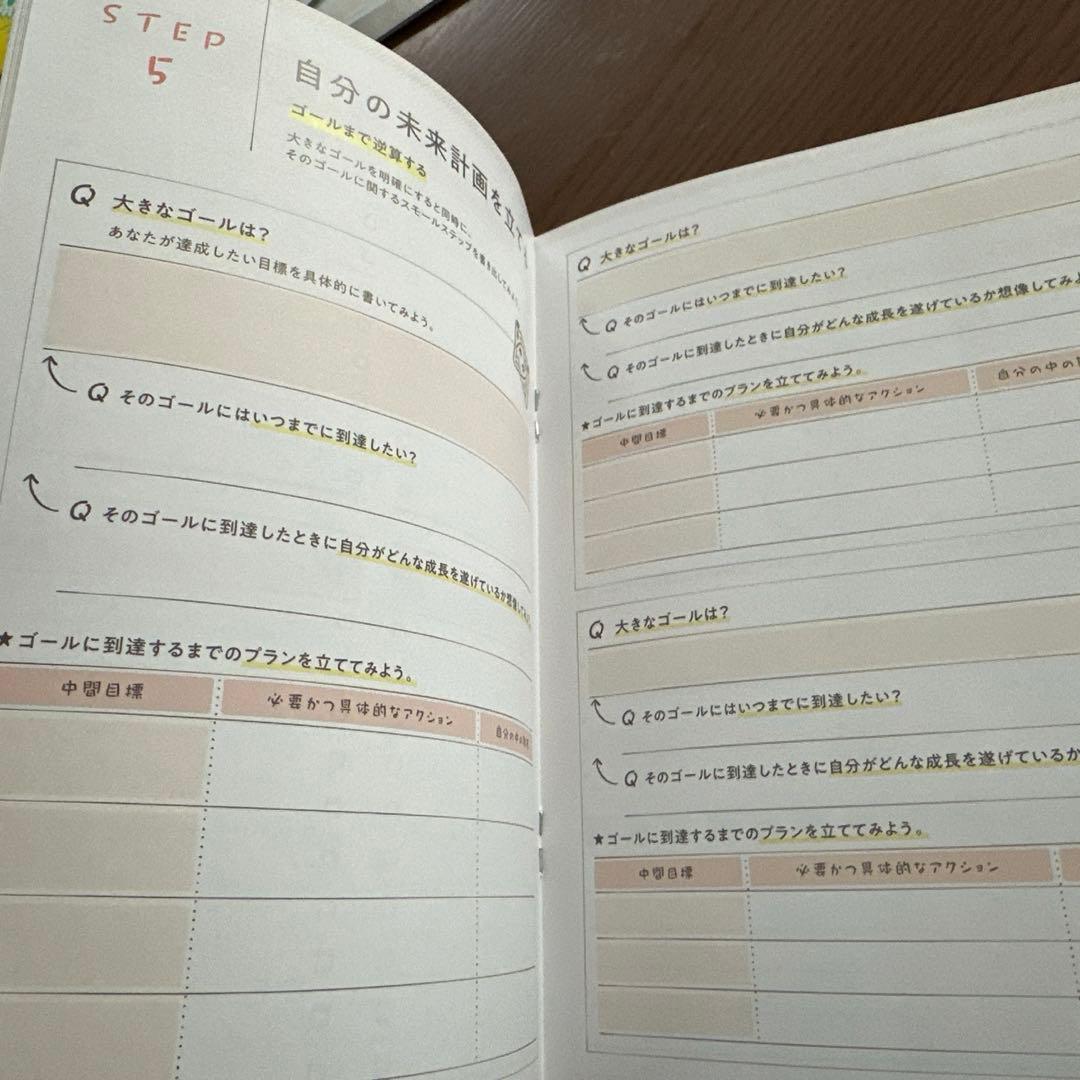 STEP
5
自分の未来計画を立て
ゴールまで逆算する
大きなゴールを明確にすると同時に、
そのゴールに関するスモールステップを書き出してみよう
Q 大きなゴールは?
あなたが達成したい目標を具体的に書いてみよう。
Q そのゴールにはいつまでに到達したい?
Q そのゴールに到達したときに自分がどんな成長を遂げているか想像してみ
★ゴールに到達するまでのプランを立ててみよう。
中間目標 必要かつ具体的なアクション 自分の中の
Q 大きなゴールは?
Q そのゴールにはいつまでに到達したい?
Q そのゴールに到達したときに自分がどんな成長を遂げているか想像してみよ
★ゴールに到達するまでのプランを立ててみよう。
中間目標 必要かつ具体的なアクション 自分の中の
Q 大きなゴールは?
Q そのゴールにはいつまでに到達したい?
Q そのゴールに到達したときに自分がどんな成長を遂げているか
★ゴールに到達するまでのプランを立ててみよう。
中間目標 必要かつ具体的なアクション